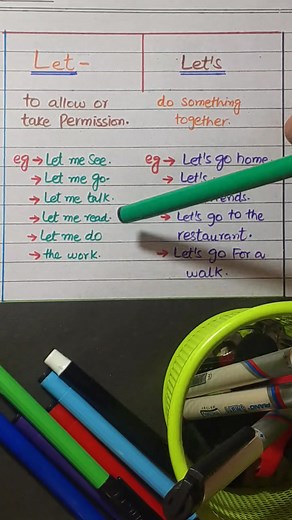 Let-
to allow or
take Permission.
eg → Let me See.
→ Let me go.
→ Let me talk.
→ Let me read.
→ Let me do
→ the work.
Let's
do something
together.
eg → Let's go home
→ Let's
→ Let's go to the
restaurant.
→ Let's go For a
walk.